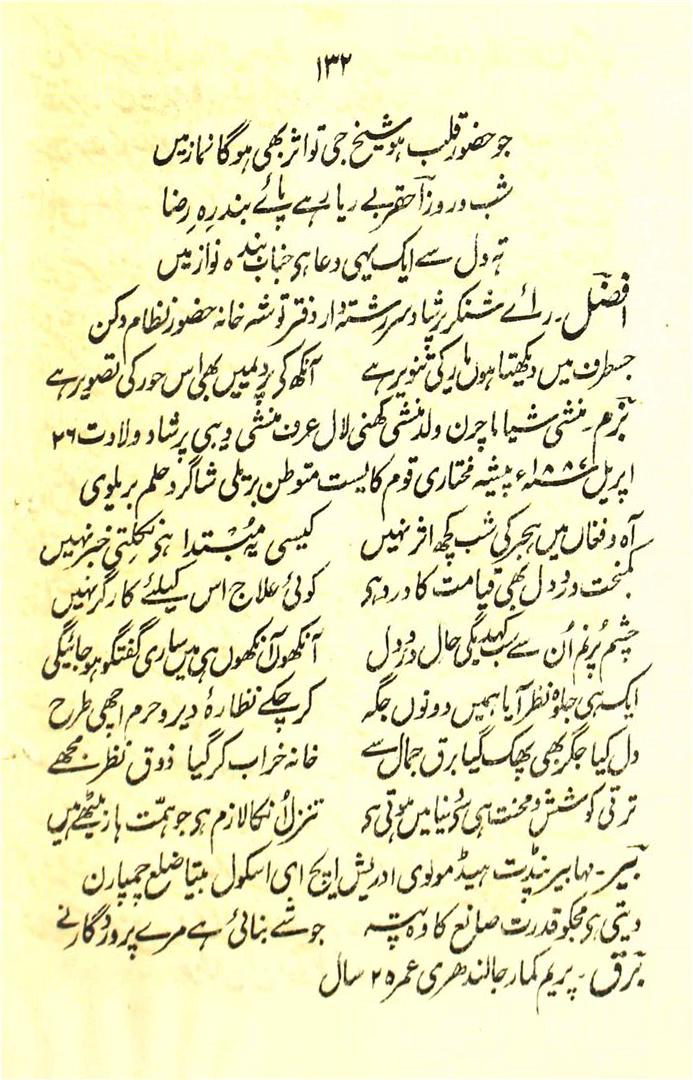 ۱۳۲
جو حضور قلب ہو شیخ جی تو اثر بھی ہوگا نماز میں
شب و روز احقر بے ریا رہے پائے بند رہِ رضا
تہ دل سے ایک یہی دعا ہی جناب بندہ نواز میں
افضل۔ رائے شنکر پرشاد سررشتہ دار دفتر توشہ خانہ حضور نظام دکن
جسطرف میں دیکھتا ہوں یار کی تنویر ہے آنکھ کی پردیمیں بھی اس حور کی تصویر ہے
بزم۔ منشی شیاما چرن ولد منشی مکھنی لال عرف منشی دیبی پرشاد ولادت ۲۶
اپریل ۱۸۸۷ء پیشہ مختاری قوم کایست متوطن بریلی شاگرد حلم بریلوی
آہ و فغاں میں ہجر کی شب کچھ اثر نہیں کیسی یہ مبتدا ہی نکلتی خبر نہیں
کمبخت درد دل بھی قیامت کا درد ہی کوئی علاج اس کیلئے کارگر نہیں
چشم پُرنم اُن سے سب کہدیگی حال درد دل آنکھوں آنکھوں ہی میں ساری گفتگو ہو جائیگی
ایک ہی جلوہ نظر آیا ہمیں دونوں جگہ کر چکے نظارۂ دیر و حرم اچھی طرح
دل کیا جگر بھی پھک گیا برق جمال سے خانہ خراب کر گیا ذوق نظر مجھے
ترقی کوشش و محنت ہی سے دنیا میں ہوتی ہی تنزل اُنکا لازم ہی جو ہمت ہار بیٹھے ہیں
بیر۔ مہابیر پنڈت ہیڈ مولوی ادریش ایچ ای اسکول بیتیا ضلع چمپارن
دیتی ہی مجکو قدرت صانع کا وہ پتہ جو شے بنائی ہے مرے پروردگار نے
برق۔ پریم کمار جالندھری عمر ۲۰ سال